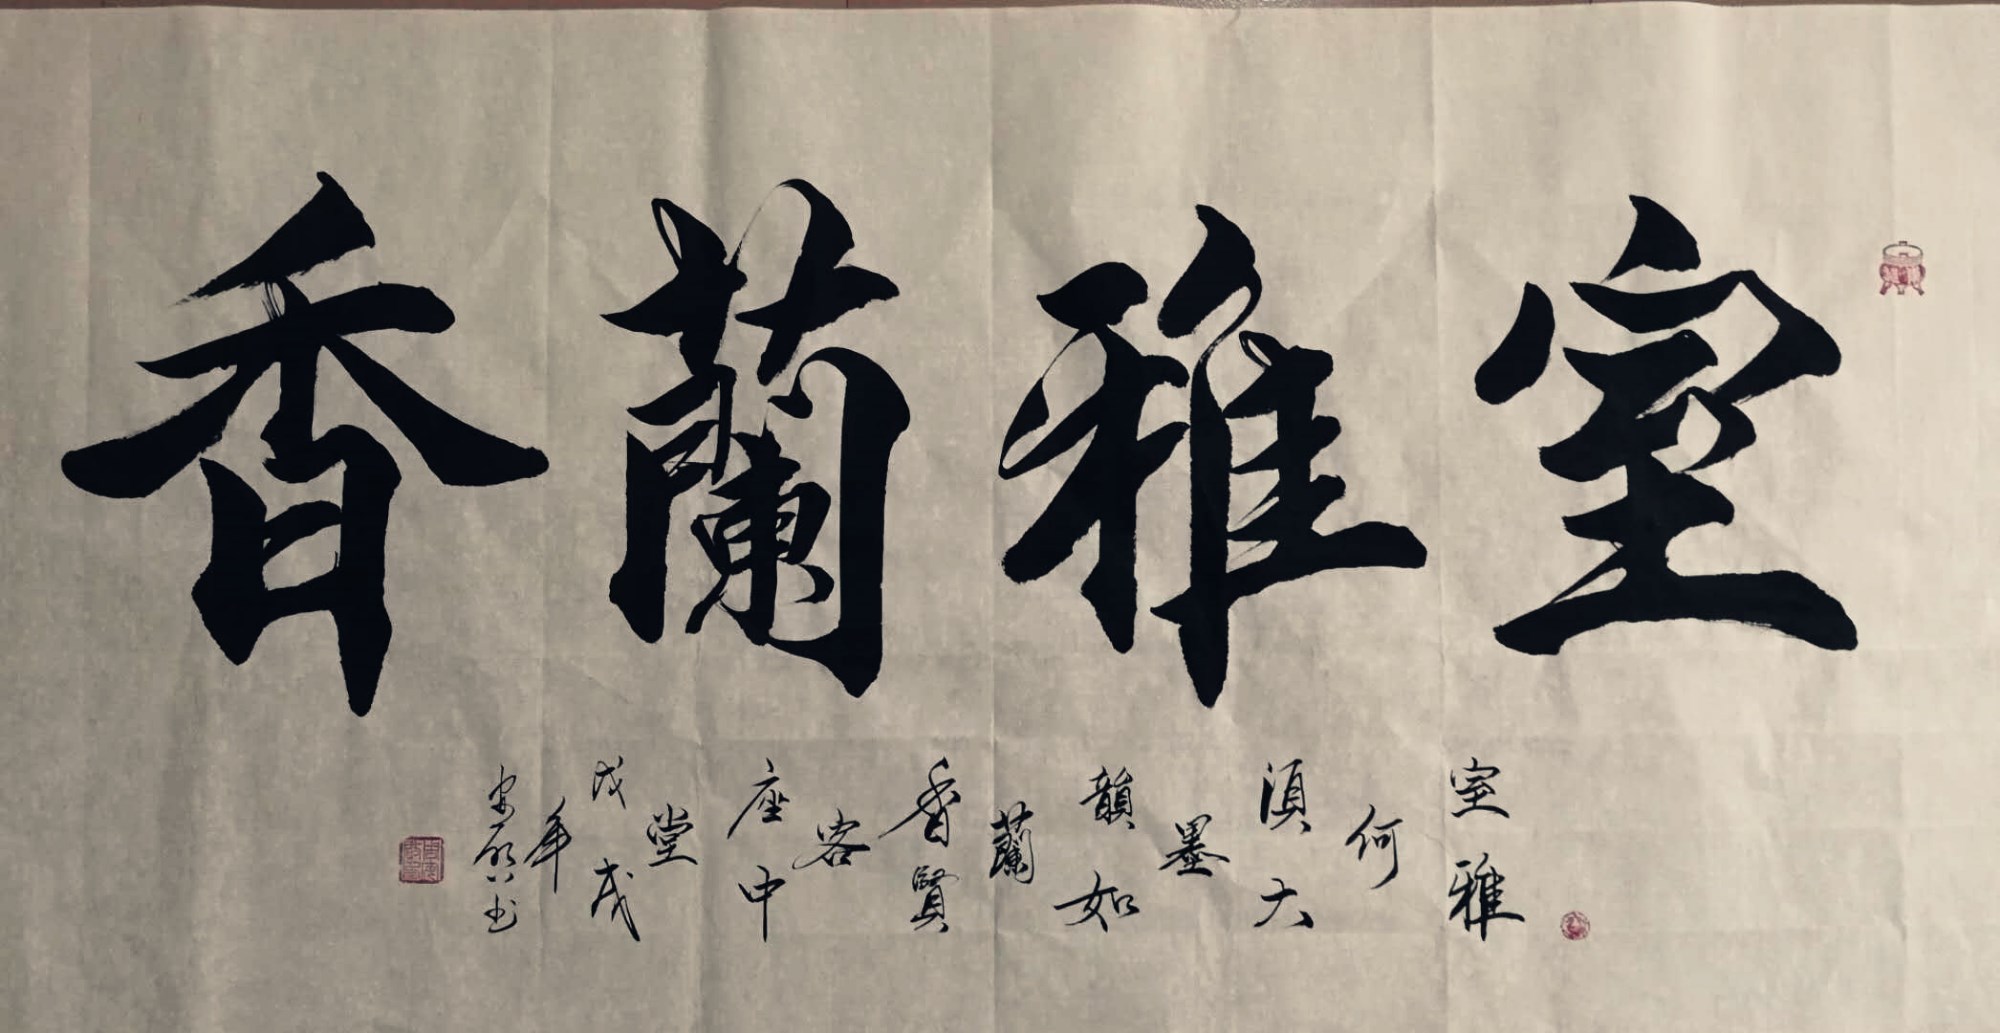 室雅蘭香
室雅
何
湏大
墨
韻如
蘭
香賢
客
座中
堂
戊戌
年
书